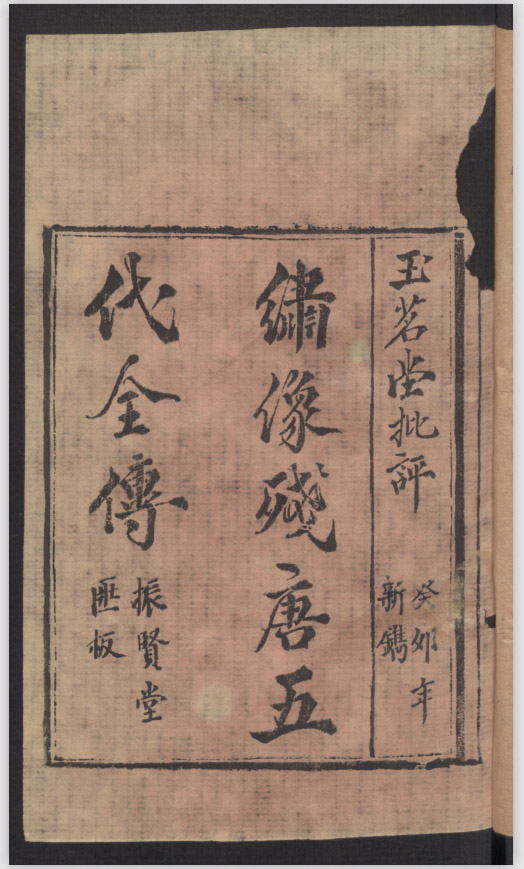 玉茗堂批評
癸卯年
新鐫
繡像殘唐五
代全傳
振賢堂
匪板